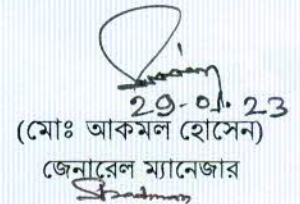 29-01-23
(মোঃ আকমল হোসেন)
জেনারেল ম্যানেজার